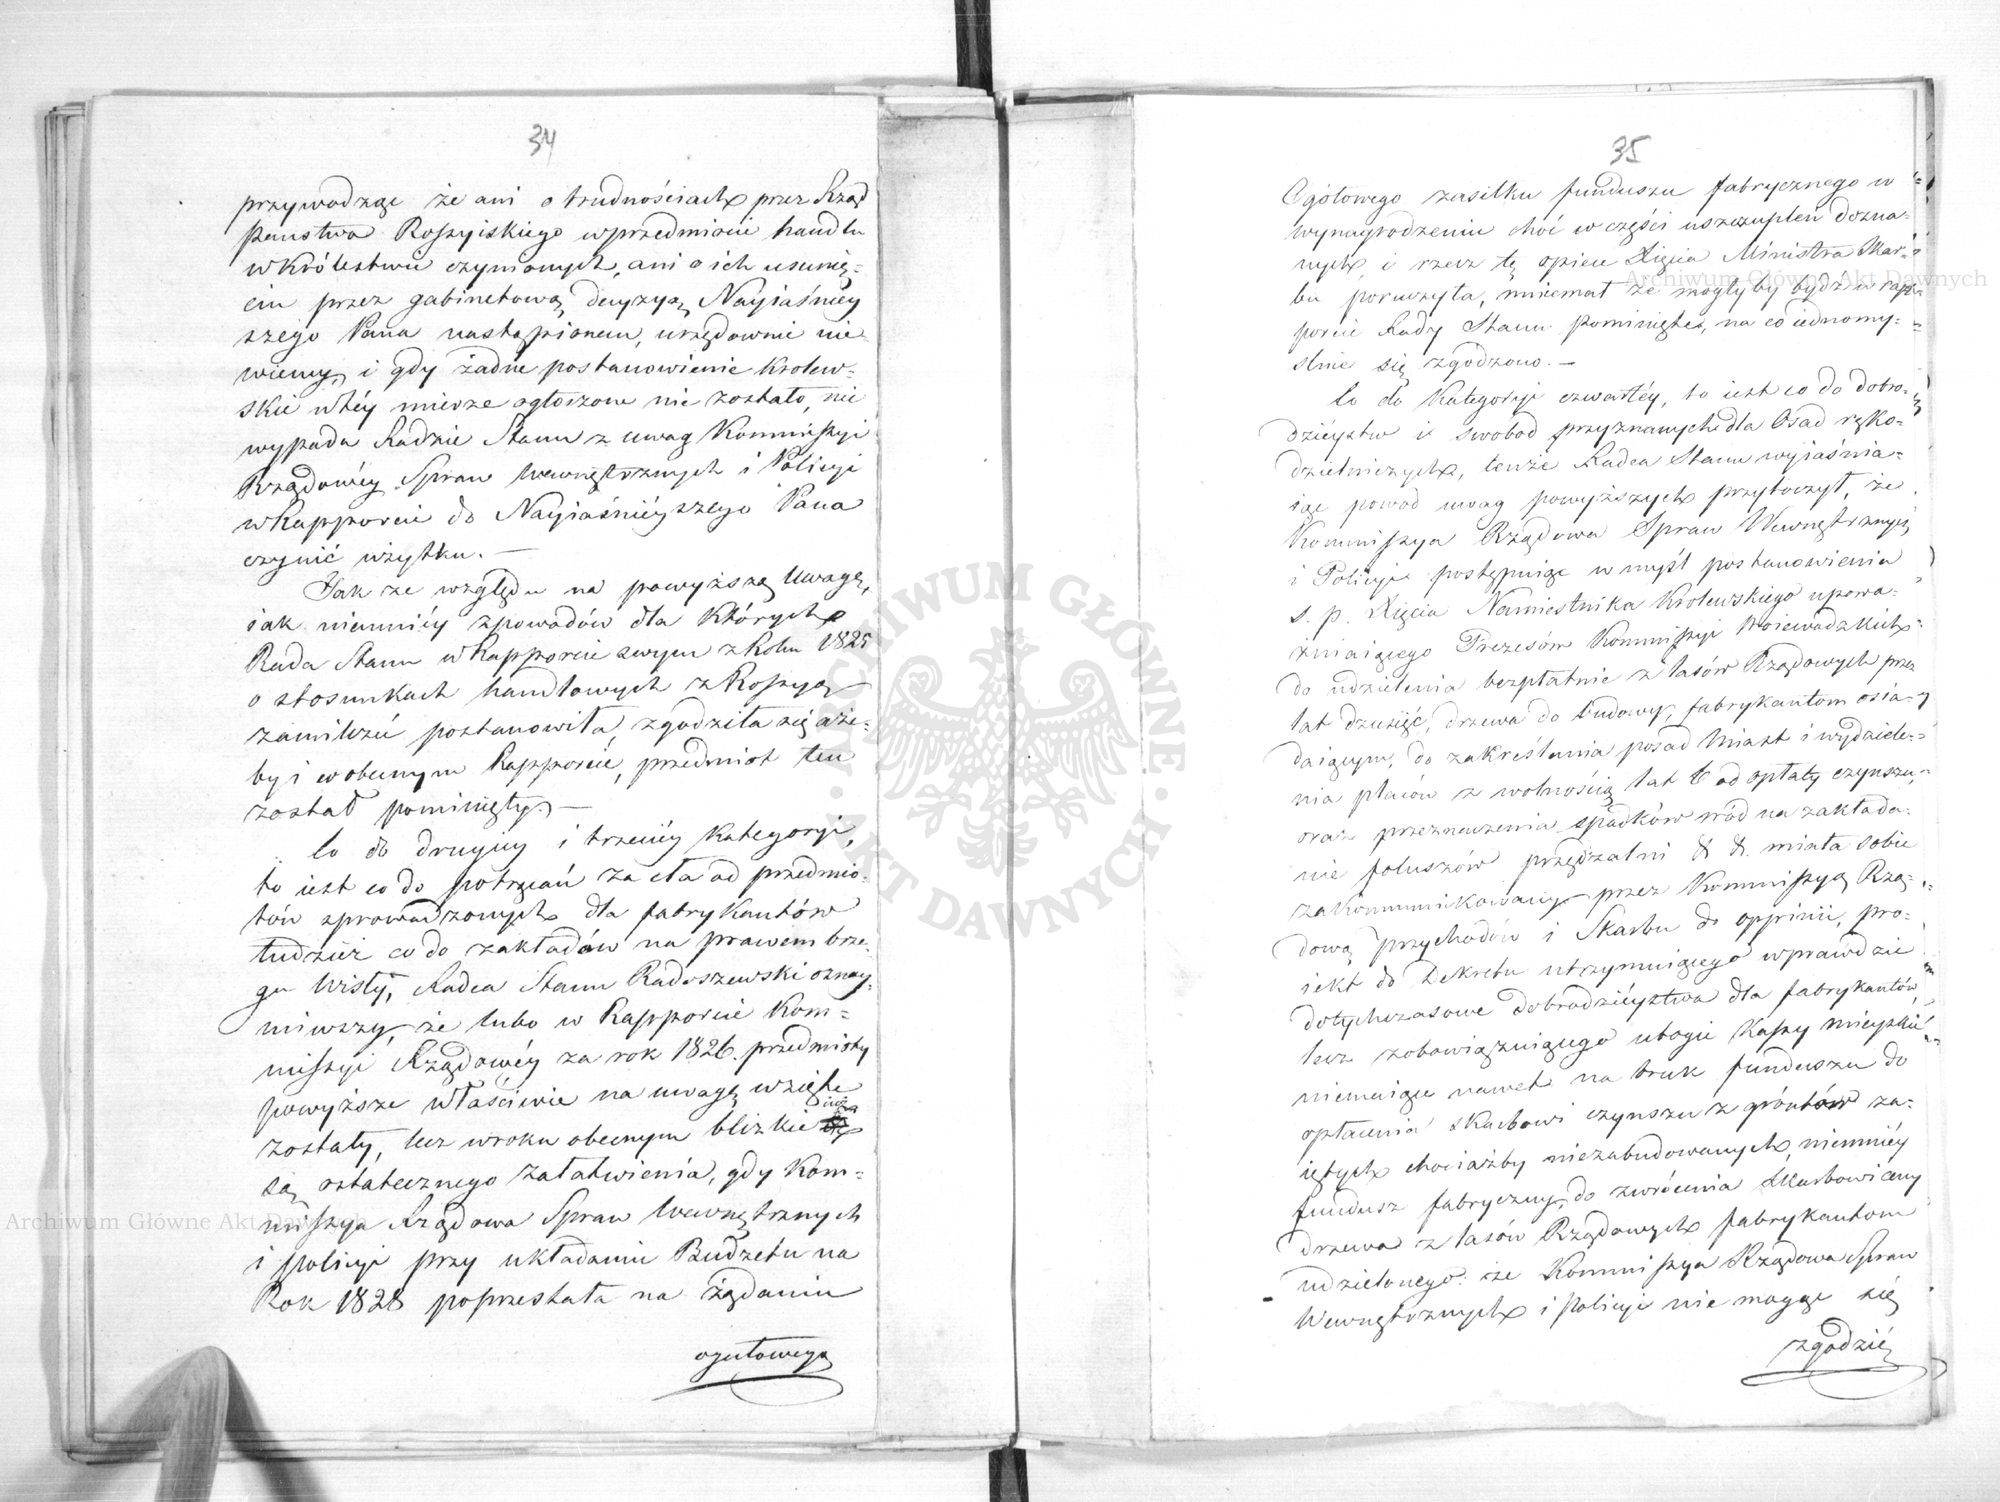 34
przywodząc że ani o trudnościach przez Rząd
Panstwa Rossyiskiego w przedmiocie handlu
w Królestwie czynionych, ani o ich usunię-
ciu przez gabinetową decyzyą Nayiaśniey
szego Pana nastąpionem, urzędownie nie-
wiemy, i gdy żadne postanowienie Krolew-
skie w téy mierze ogłoszone nie zostało, nie
wypada Radzie Stanu z uwag Kommissyi
Rządowéy Spraw Wewnętrznych i Policyi
w Rapporcie do Nayiaśnieyszego Pana
czynić użytku. —
Jak ze względu na powyższą uwagę,
iak niemniéy z powodów dla których
Rada Stanu w Rapporcie swym z Roku 1825
o stosunkach handlowych z Rossyą
zamilczeć postanowiła, zgodziła się aże-
by i w obecnym Rapporcie, przedmiot ten
został pominięty. —
Co do drugiey i trzeciéy Kategoryi,
to iest co do potrąceń za cła od przedmio-
tów sprowadzonych dla fabrykantów
tudzież co do zakładów na prawem brze-
gu Wisły, Radca Stanu Radoszewski oznay-
miwszy, że lubo w Rapporcie Kom-
missyi Rządowéy za rok 1826. przedmioty
powyższe właściwie na uwagę wzięte
zostały, lecz w roku obecnym blizkie iuż
są ostatecznego załatwienia, gdy Kom-
missya Rządowa Spraw Wewnętrznych
i Policyi przy układaniu Budżetu na
Rok 1828 poprzestała na żądaniu
ogułowego
35
Ogółowego zasiłku funduszu fabrycznego w
wynagrodzeniu choć w części uszczupleń dozna-
nych, i rzecz tę opiece Xięcia Ministra Skar-
bu poruczyła, mniemał że mogłyby bydź w rap-
porcie Rady Stanu pominięte, na co iednomy-
slnie się zgodzono. —
Co do Kategoryi czwartéy, to iest co do dobro-
dzieystw i swobod przyznanych dla Osad ręko-
dzielniczych, tenże Radca Stanu wyiaśnia-
iąc powod uwag powyższych przytoczył, że
Kommissya Rządowa Spraw Wewnętrznych
i Policyi postępuiąc w myśl postanowienia
s. p. Xięcia Namiestnika Krolewskiego upowa-
żniaiącego Prezesów Kommissyi Woiewodzkich
do udzielenia bezpłatnie z lasów Rządowych przez
lat dziesięć, drzewa do budowy, fabrykantom osia-
daiącym, do zakreślania posad Miast i wydziele-
nia placów z wolnością lat 6 od opłaty czynszu,
oraz przeznaczenia spadków wód na zakłada-
nie foluszów przędzalni &. &. miała sobie
zakommunikowany przez Kommissyą Rzą-
dową przychodów i Skarbu do oppinii, pro-
iekt do Dekretu utrzymuiącego wprawdzie
dotychczasowe dobrodzieystwa dla fabrykantów,
lecz zobowiązuiącego ubogie Kassy mieyskie
niemaiące nawet na bruk funduszu do
opłacenia skarbowi czynszu z gróntów za-
iętych chociażby niezabudowanych, niemniéy
fundusz fabryczny, do zwrócenia skarbowi ceny
drzewa z lasów Rządowych fabrykantom
udzielonego: że Kommissya Rządowa Spraw
Wewnętrznych i Policyi nie mogąc się
zgodzić
Archiwum Główne Akt Dawnych
Archiwum Główne Akt Dawnych
ARCHIWUM GŁÓWNE · AKT DAWNYCH ·